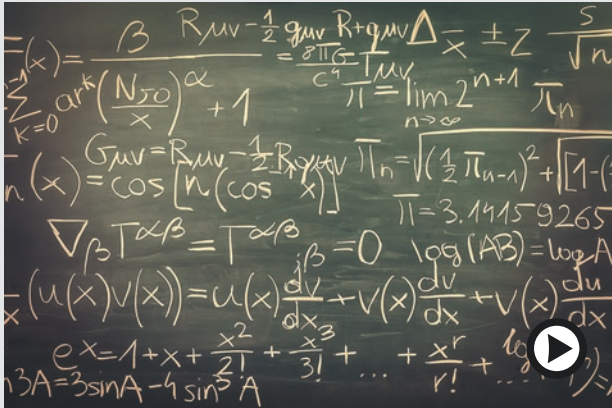 β R_μν − 1/2 g_μν R + g_μν Δ = 8πG/c⁴ T_μν
x̄ ± z s/√n
(x) =
∑ k=0 n−1 ar^k (N₅₀/x)^α + 1
π = lim n→∞ 2^(n+1) π_n
G_μν = R_μν − 1/2 R g_μν
π_n = √((1/2 π_n−1)² + [1−(
n(x) = cos [n(cos x)]
π = 3.1415 9265
∇_β T^αβ = T^αβ ;β = 0
log(AB) = log A
(u(x)v(x)) = u(x) dv/dx + v(x) dv/dx + v(x) du/dx
e x = 1 + x + x²/2! + x³/3! + ... + x^r/r! + ....
n3A = 3sinA − 4 sin³ A